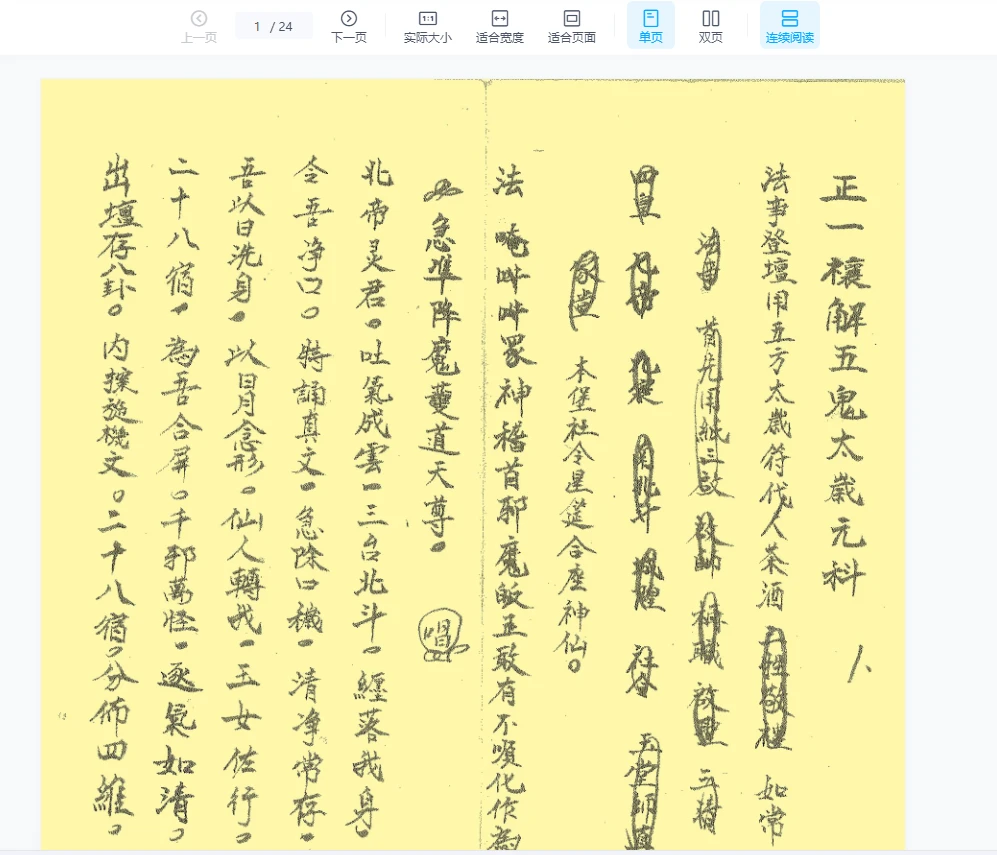 上一页
1 / 24
下一页
1:1
实际大小
适合宽度
适合页面
单页
双页
连续阅读
正一禳解五鬼太歲元科
法事登壇用五方太歲符代人茶酒 如常
法事 首先用紙三啟 啟師 職 啟聖
四皇 城隍 社令 玉堂師真
家堂 本堡社令星筵合座神仙。
法 唵吽吽眾神稽首邪魔皈正敢有不順化作為
急準降魔 道天尊。 唱
北帝灵君。吐氣成雲。三台北斗。經落我身。
令吾净口。特誦真文。急除口穢。清净常存。
吾以日洗身。以月念形。仙人轉我。玉女佐行。
二十八宿。為吾合屏。千邪萬怪。逐氣如清。
出壇存八卦。内探旋機文。二十八宿。分佈四維。